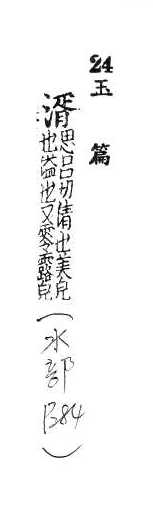 24玉篇
湑思呂切清也美皃
也溢也又零露皃
(水部
B84)